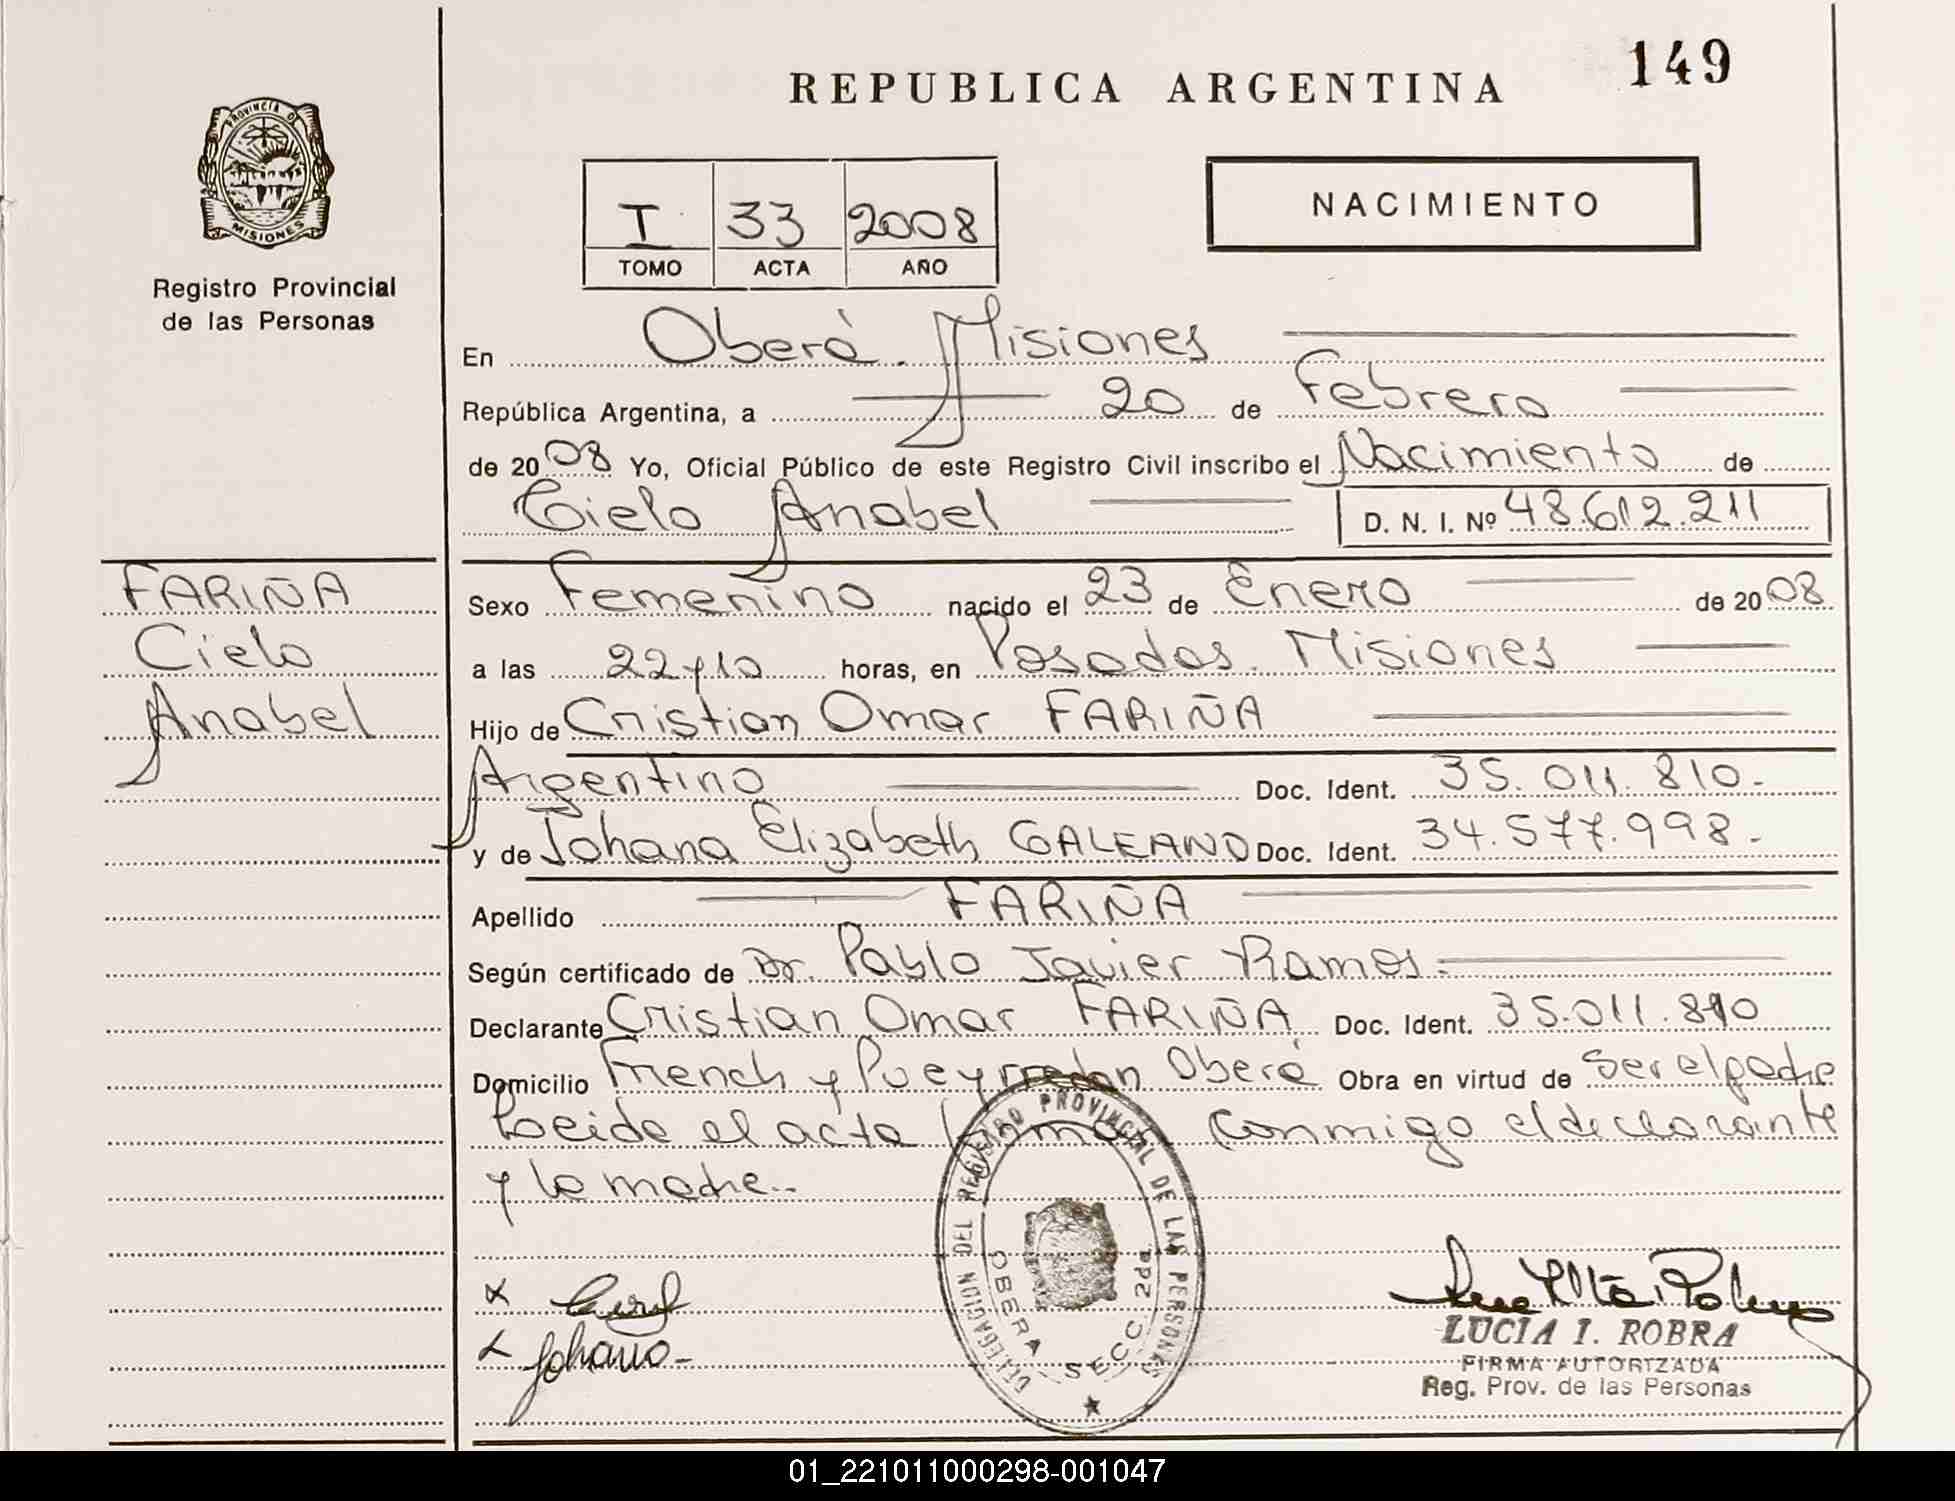 149
REPUBLICA ARGENTINA
PROVINCIA DE
MISIONES
Registro Provincial
de las Personas
NACIMIENTO
I 33 2008
TOMO ACTA AÑO
En Oberá. Misiones
República Argentina, a 20 de Febrero
de 2008 Yo, Oficial Público de este Registro Civil inscribo el Nacimiento de
Cielo Anabel D. N. I. Nº 48.612.211
FARIÑA
Cielo
Anabel
Sexo Femenino nacido el 23 de Enero de 2008
a las 22 y 10 horas, en Posadas. Misiones
Hijo de Cristian Omar FARIÑA
Argentino Doc. Ident. 35.011.810.-
y de Johana Elizabeth GALEANO Doc. Ident. 34.577.998.-
Apellido FARIÑA
Según certificado de Dr. Pablo Javier Ramos.
Declarante Cristian Omar FARIÑA Doc. Ident. 35.011.810
Domicilio French y Pueyrredon Oberá Obra en virtud de ser el padre
Leida el acta firman conmigo el declarante
y la madre..
DELEGACION DEL REGISTRO PROVINCIAL DE LAS PERSONAS
OBERA SECC. 2da.
x
x Johana-
LUCIA I. ROBRA
FIRMA AUTORIZADA
Reg. Prov. de las Personas
01_221011000298-001047